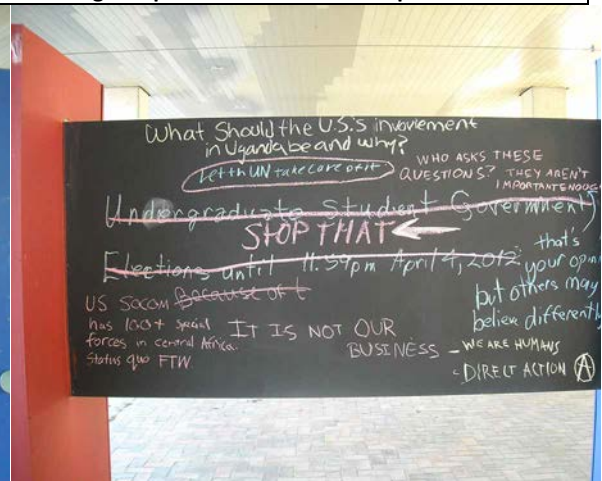 What Should the U.S.'s involvement
in Uganda be and why?
Let th UN take care of it
WHO ASKS THESE
QUESTIONS? THEY AREN'T
IMPORTANT ENOUGH
Undergraduate Student Government
STOP THAT
Elections until 11:59pm April 4, 2012
that's
your opini
but others may
believe differently
US SOCOM Because of t
has 100+ special
forces in central Africa.
Status quo FTW
IT IS NOT OUR
BUSINESS
- WE ARE HUMANS
- DIRECT ACTION Ⓐ